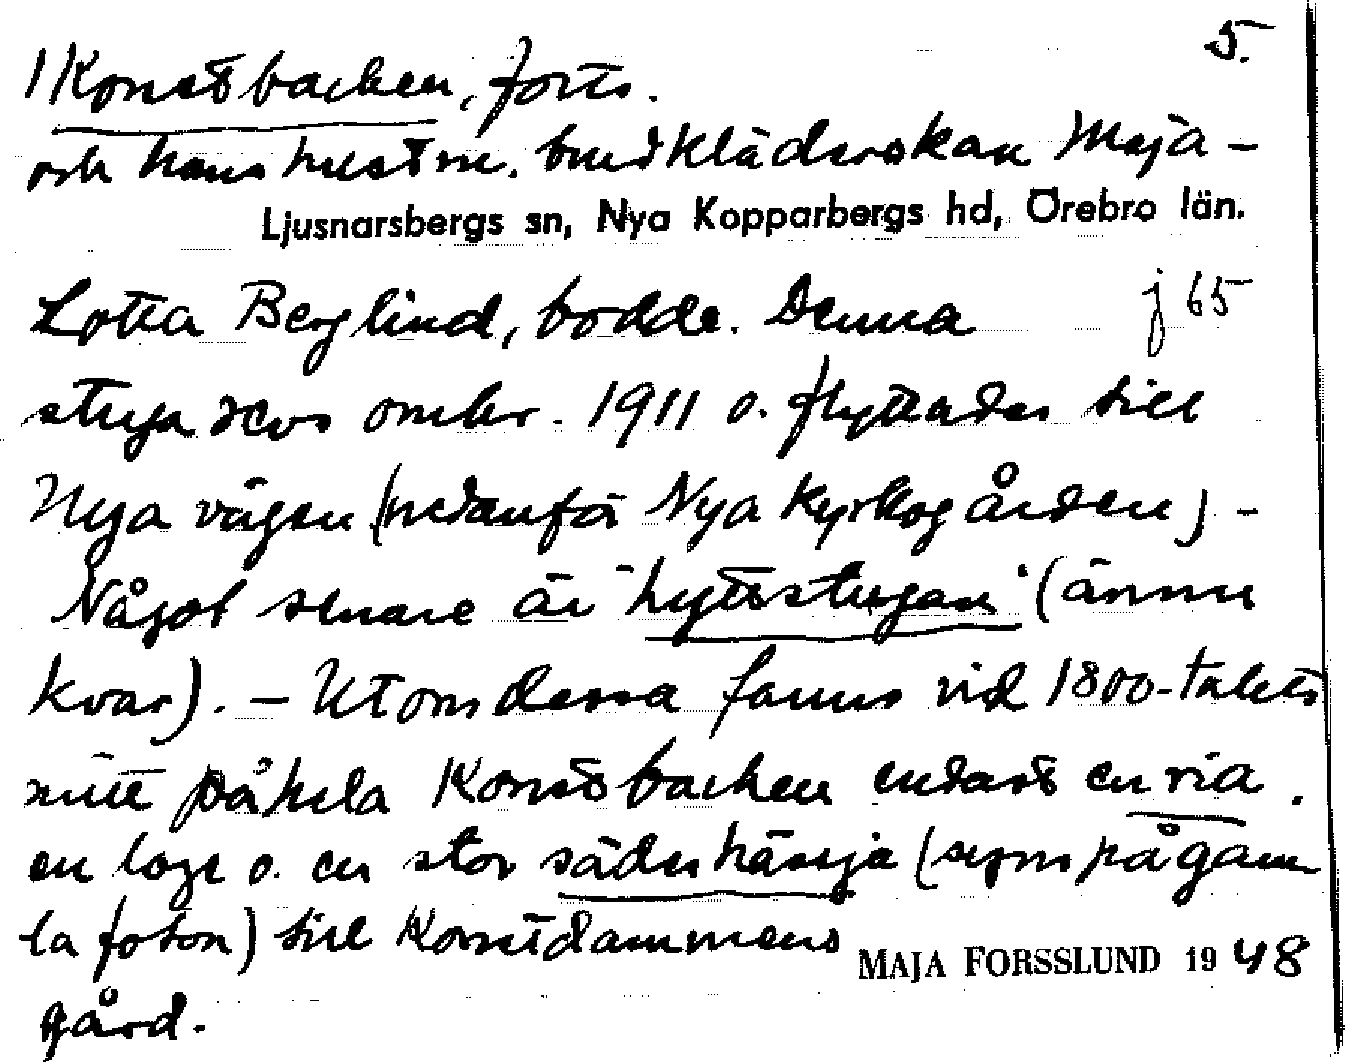 5.
1) Konstbacken, forts.
och hans hustru, brudkläderskan Maja-
Ljusnarsbergs sn, Nya Kopparbergs hd, Örebro län.
Lotta Berglind, bodde. Denna j 65
stuga revs omkr. 1911 o. flyttades till
Nya vägen (nedanför Nya kyrkogården) -
Något senare är "hyttstugan" (ännu
kvar). - Utom dessa fanns vid 1800-talets
mitt på hela Konstbacken endast en ria,
en loge o. en stor sädeshässja (syns på gam
la foton) till Konstdammens
MAJA FORSSLUND 1948
gård.